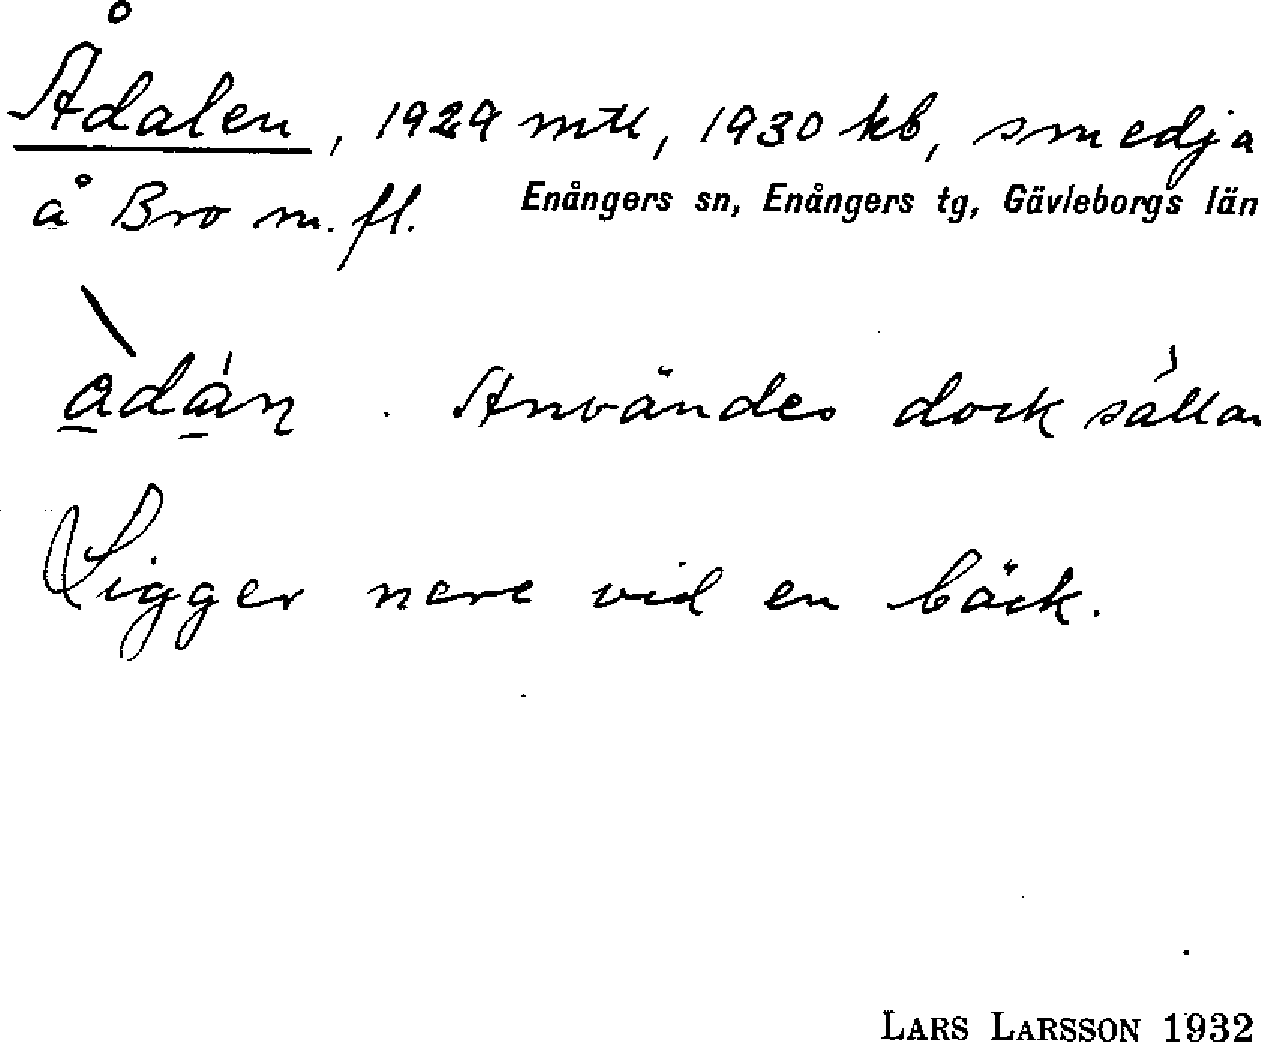 Ådalen, 1929 mtl, 1930 kb, smedja
å Bro m. fl. Enångers sn, Enångers tg, Gävleborgs län
Användes dock sällan
Ligger nere vid en bäck.
LARS LARSSON 1932